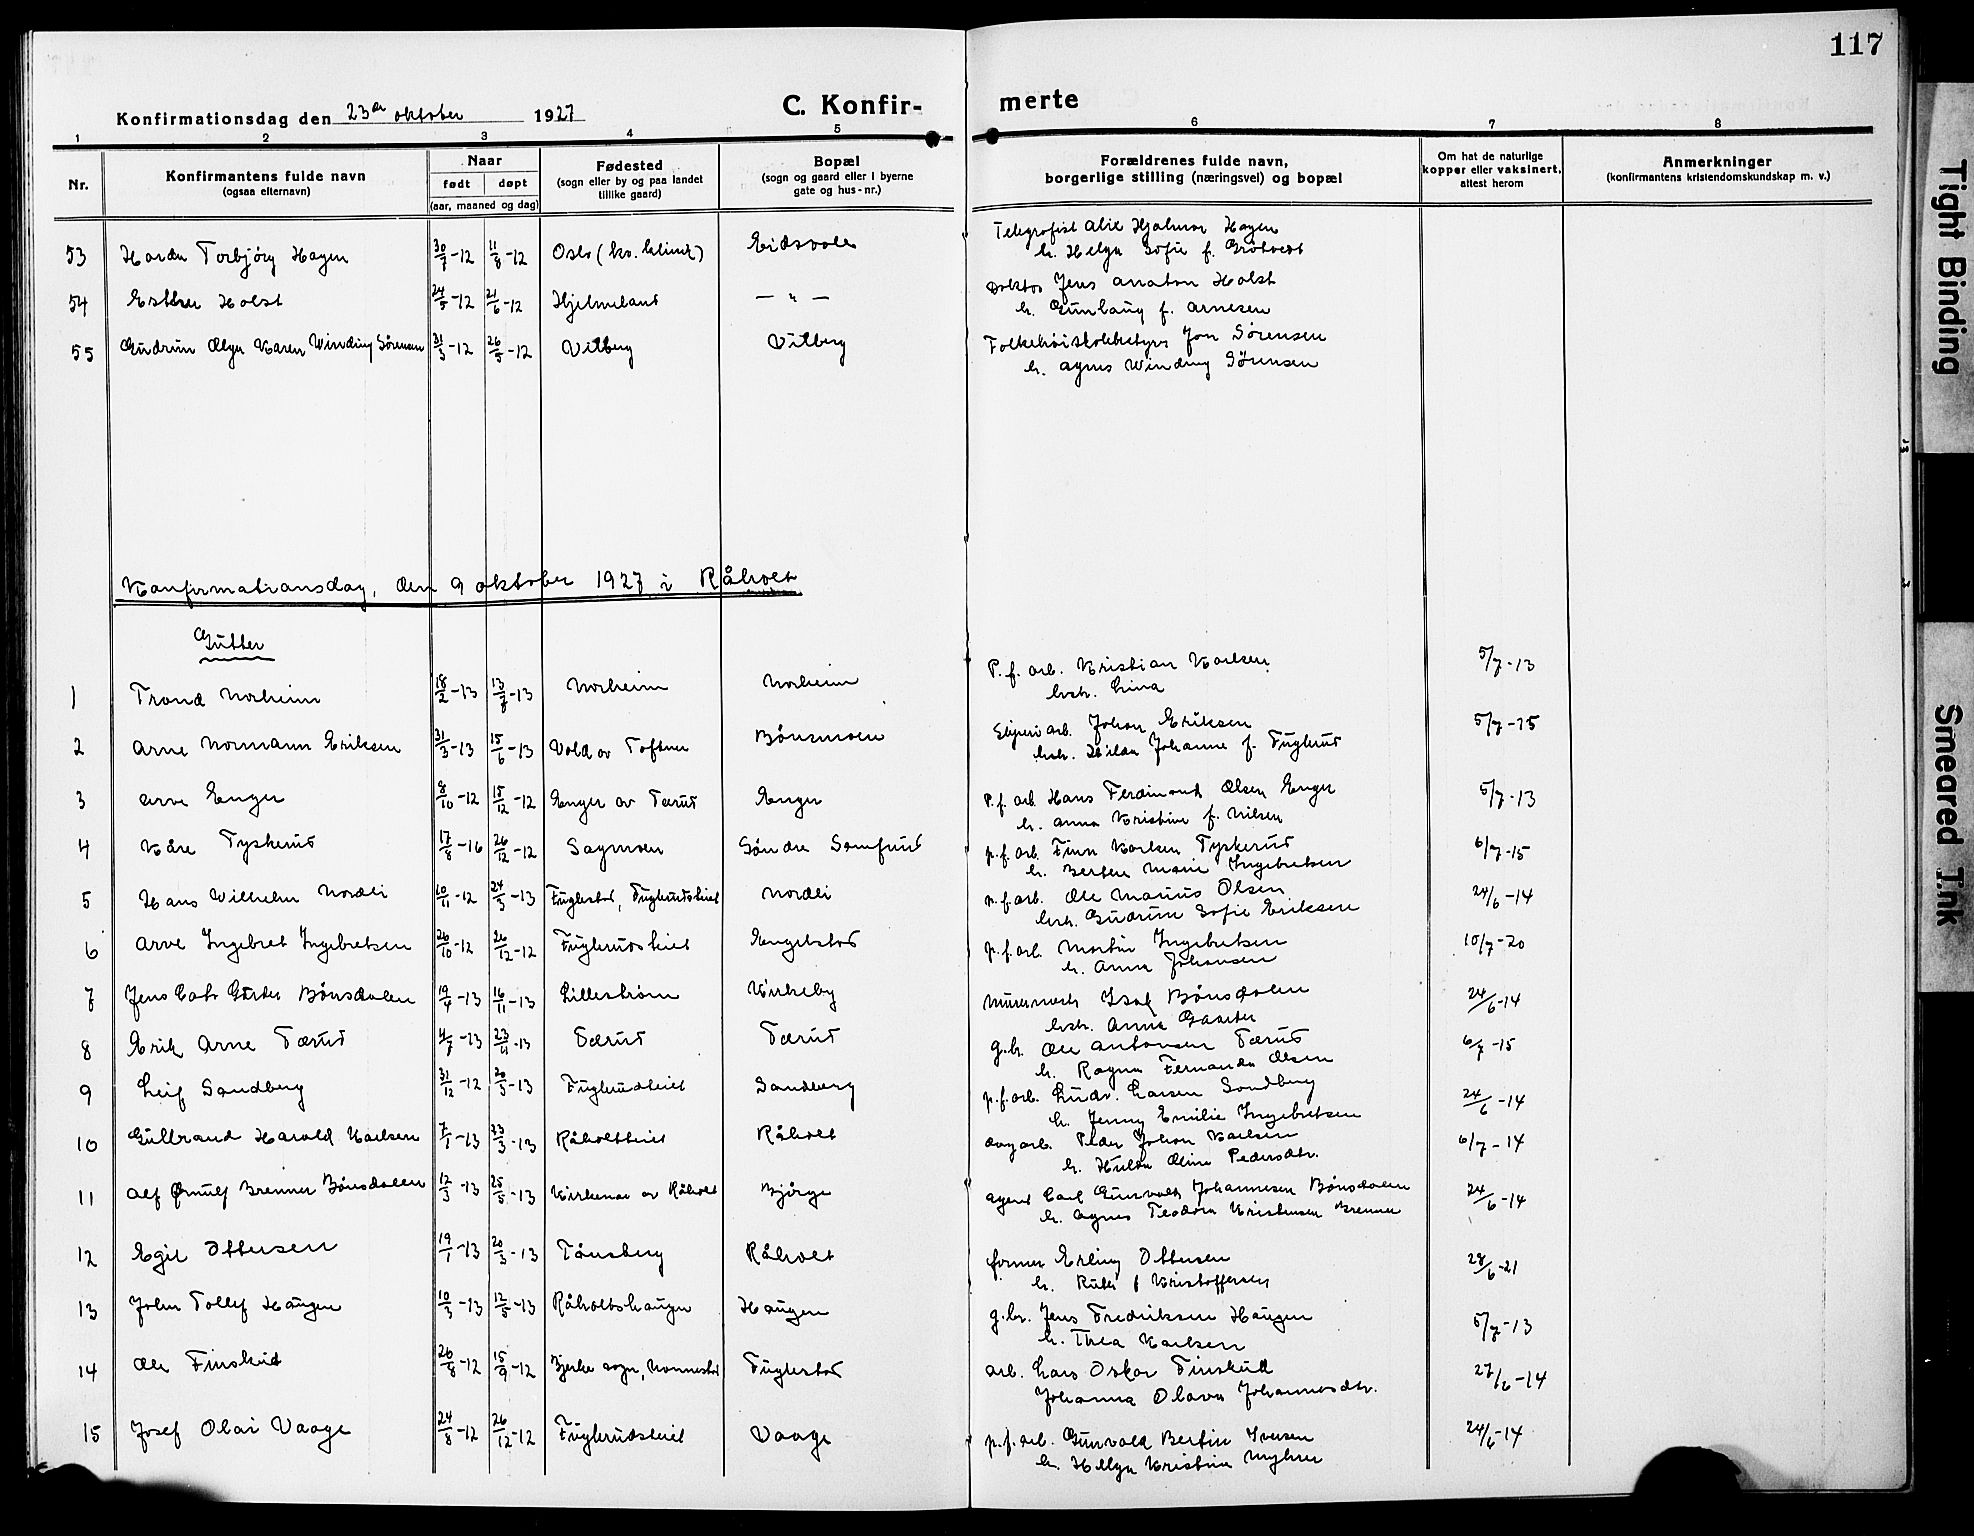 117
Konfirmationsdag den 23de oktober 1927
C. Konfirmerte
1 2 3 4 5 6 7 8
Nr.
Konfirmantens fulde navn
(ogsaa efternavn)
Naar
født døpt
(aar, maaned og dag)
Fødested
(sogn eller by og paa landet
tillike gaard)
Bopæl
(sogn og gaard eller i byerne
gate og hus-nr.)
Forældrenes fulde navn,
borgerlige stilling (næringsvei) og bopæl
Om hat de naturlige
kopper eller vaksinert,
attest herom
Anmerkninger
(konfirmantens kristendomskundskap m. v.)
53 Torbjørg Hagen 30/7-12 11/8-12 Oslo Eidsvoll Telegrafist Hjalmar Hagen
h. Helga Sofie f.
54 Esther Holst 24/5-12 21/6-12 Hjelmeland — " — Doktor Jens Anaton Holst
h. Gunlaug f. Arnesen
55 Gudrun Olga Karen Winding Sørensen 31/3-12 26/5-12 Vilberg Vilberg Folkehøiskolebestyrer Jon Sørensen
h. Agnes Winding Sørensen
Konfirmationsdag, den 9 oktober 1927 i Råholt
Gutter
1 Trond Norheim 18/2-13 13/7-13 Norheim Norheim P.f. arb. Kristian Karlsen 5/7-13
hstr. Lina
2 Arne Normann Eriksen 31/3-13 15/6-13 Vold av Toftner Bønsmoen arb. Johan Eriksen 5/7-15
hstr. Hilda Johanne f. Fuglerud
3 Arve Enger 8/10-12 15/12-12 Enger av Tærud Enger P.f. arb. Hans Ferdinand Olsen Enger 5/7-13
h. Anna Kristine f. Nilsen
4 Kåre Tyskerud 17/8-16 26/12-12 Sagmoen Søndre p.f. arb. Finn Karlsen Tyskerud 6/7-15
h. Berthe Marie Ingebretsen
5 Hans Wilhelm Nordli 10/11-12 24/3-13 Fuglestad, Fuglerudseiet Nordli p.f. arb. Ole Marius Olsen 24/6-14
hstr. Gudrun Sofie Eriksen
6 Arve Ingebret Ingebretsen 26/10-12 26/12-12 Fuglerudseiet Engelstad p.f. arb. Martin Ingebretsen 10/7-20
h. Anna Johansen
7 Jens Bønsdalen 19/4-13 16/11-13 Lillestrøm Kirkeby Isak Bønsdalen 24/6-14
hstr. Anna Gaarder
8 Erik Arne Tærud 4/7-13 23/11-13 Tærud Tærud g.br. Ole Antonsen Tærud 6/7-15
h. Ragna Fernanda Olsen
9 Leif Sandberg 31/12-12 20/5-13 Fuglerudseiet Sandberg p.f. arb. Ludv. Larsen Sandberg 24/6-14
h. Jenny Emilie Ingebretsen
10 Gulbrand Harald Karlsen 7/1-13 23/3-13 Råholteiet Råholt dagarb. Peder Johan Karlsen 6/7-14
h. Hulda Oline Pedersdtr.
11 Alf Ørnulf Brenner Bønsdalen 12/3-13 25/5-13 Kirkemoe av Råholt Bjørge agent Carl Gunvald Johannesen Bønsdalen 24/6-14
h. Agnes Teodora Kristensen Brenner
12 Egil Ottersen 19/1-13 20/3-13 Tønsberg Råholt former Erling Ottersen 28/6-21
h. Ruth f Kristoffersen
13 John Tollef Haugen 10/3-13 12/5-13 Råholtshaugen Haugen g.br. Jens Fredriksen Haugen 5/7-13
h. Thea Karlsen
14 Ole Finskud 26/8-12 15/9-12 Bjerke sogn, Nannestad Fuglestad arb. Lars Oskar Finskud 27/6-14
Johanna Olava Johannesdtr.
15 Josef Olai Vaage 24/8-12 26/12-12 Fuglerudseiet Vaage p.f. arb. Gunvald Bertin Iversen 24/6-14
h. Helga Kristine Myhrer
Tight Binding
Smeared Ink